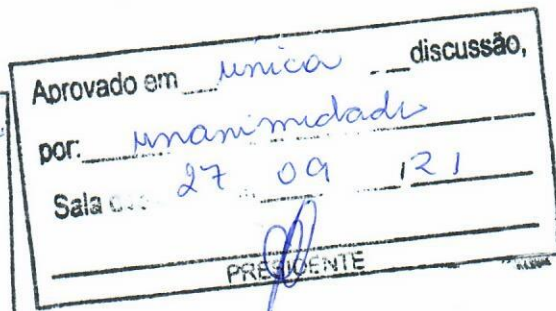 Aprovado em única discussão,
por: unanimidade
Sala 27 09 121
PRESIDENTE